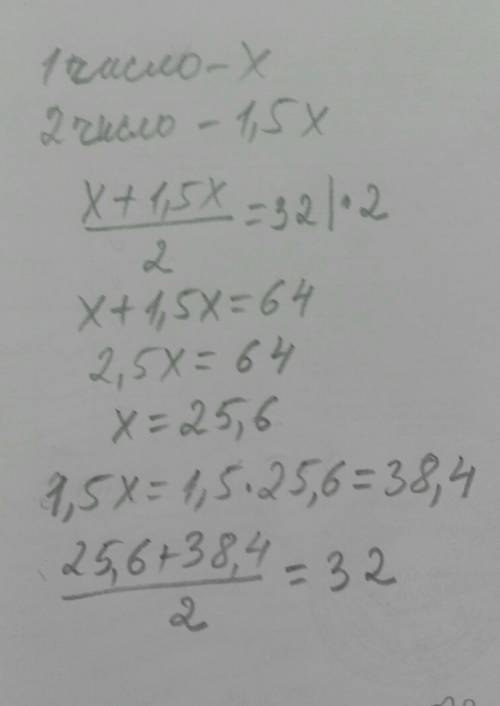 1 число – x
2 число – 1,5x
(x + 1,5x)/2 = 32 | · 2
x + 1,5x = 64
2,5x = 64
x = 25,6
1,5x = 1,5 · 25,6 = 38,4
(25,6 + 38,4)/2 = 32